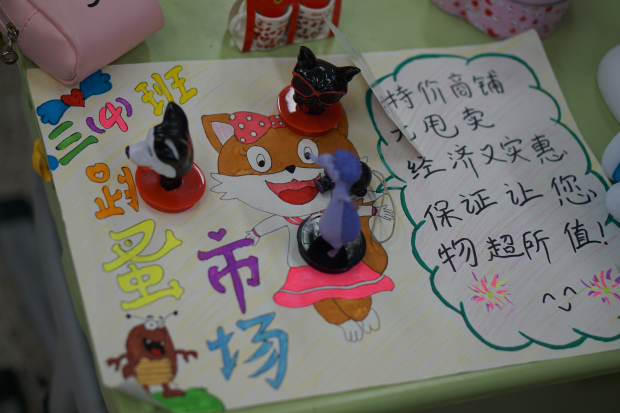 三(4)班
跳蚤
市场
特价商铺
大甩卖
经济又实惠
保证让您
物超所值!